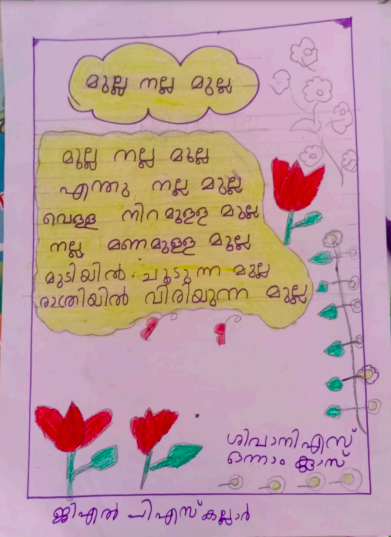 മുല്ല നല്ല മുല്ല
മുല്ല നല്ല മുല്ല
എന്തു നല്ല മുല്ല
വെള്ള നിറമുള്ള മുല്ല
നല്ല മണമുള്ള മുല്ല
മുടിയിൽ ചൂടുന്ന മുല്ല
രാത്രിയിൽ വിരിയുന്ന മുല്ല
ശിവാനിഎസ്
ഒന്നാം ക്ലാസ്
ജിഎൽ പിഎസ് കല്ലാർ